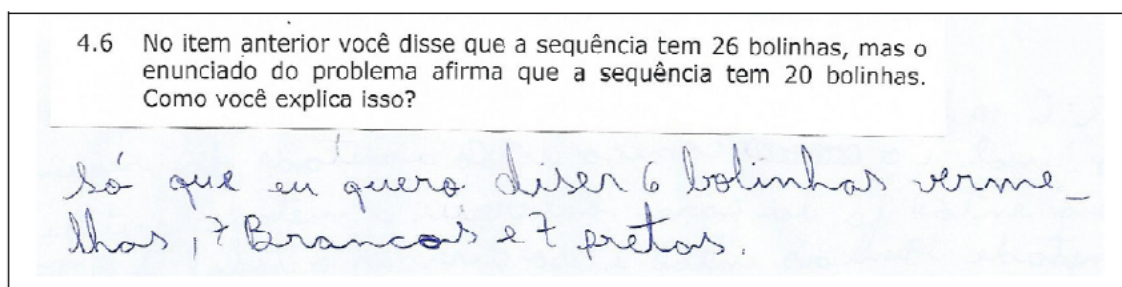 4.6 No item anterior você disse que a sequência tem 26 bolinhas, mas o
enunciado do problema afirma que a sequência tem 20 bolinhas.
Como você explica isso?
só que eu quero diser 6 bolinhas verme-
lhas, 7 Brancas e 7 pretas.